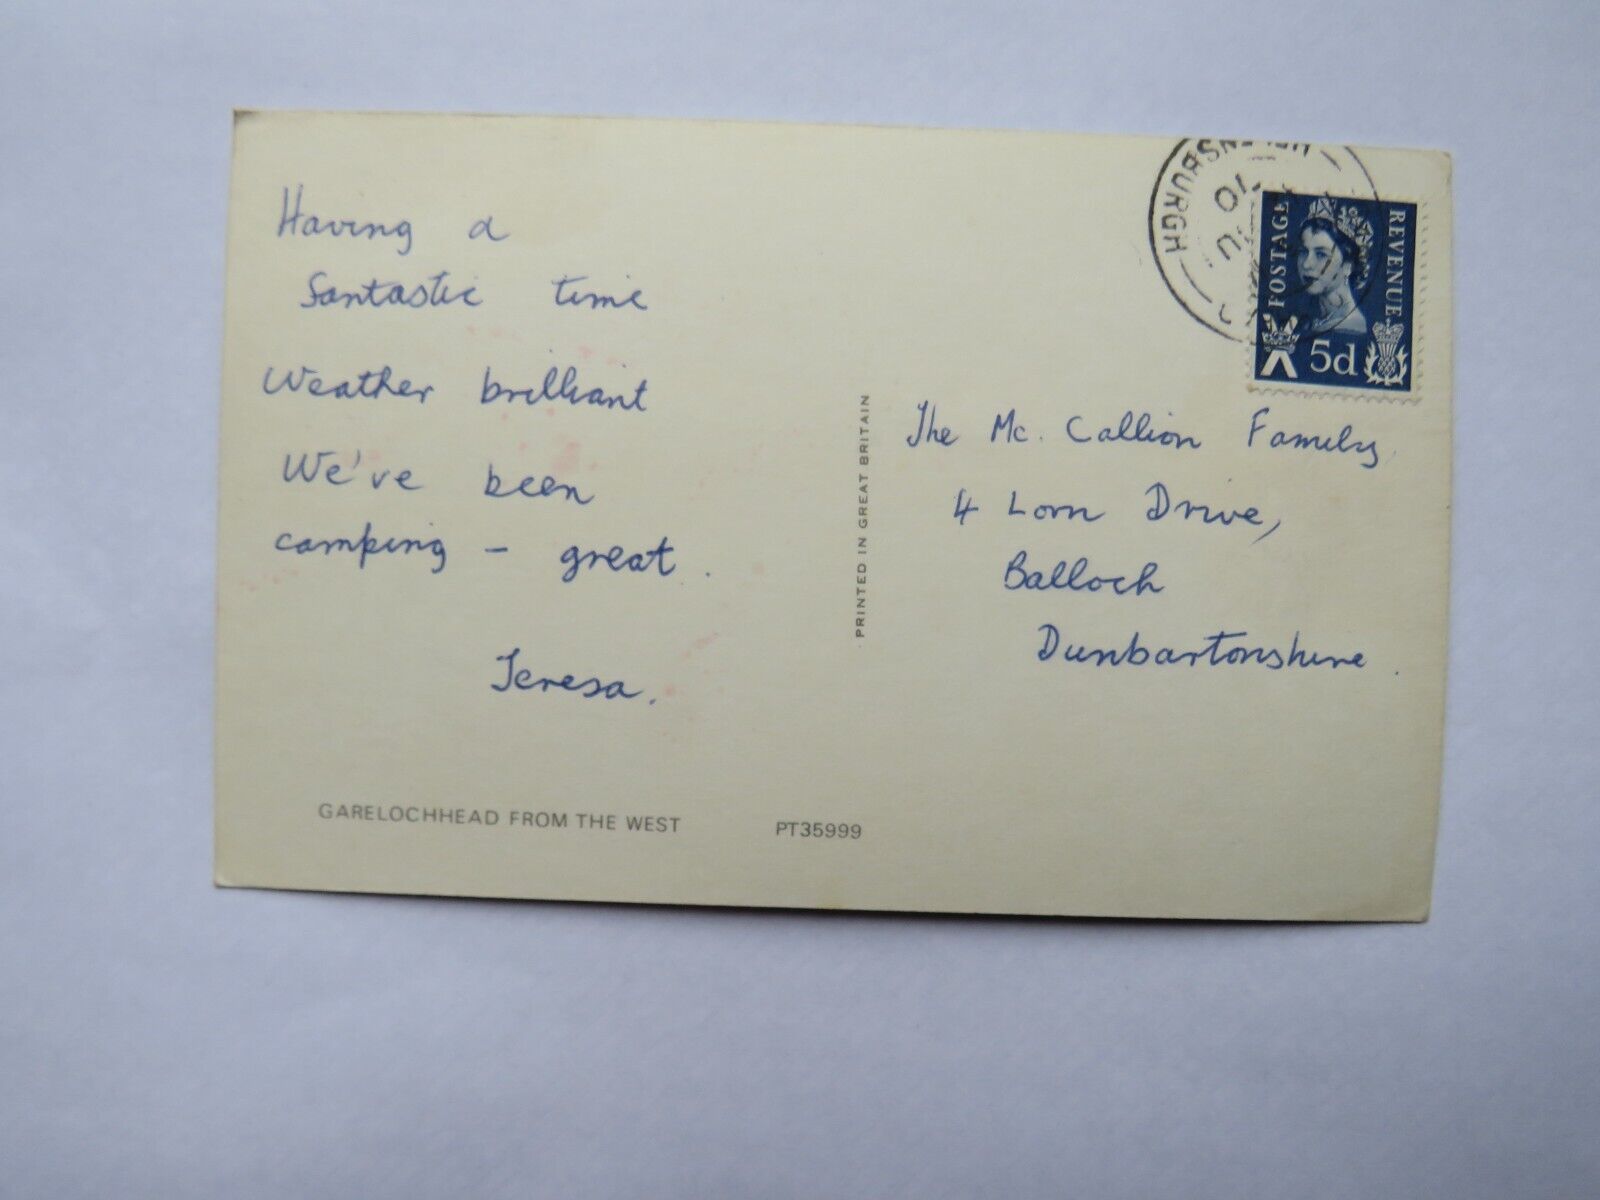 Having a
fantastic time
Weather brilliant
We've been
camping – great.
Teresa.
GARELOCHHEAD FROM THE WEST
PT35999
PRINTED IN GREAT BRITAIN
POSTAGE
REVENUE
5d
The Mc. Callion Family,
4 Lorn Drive,
Balloch
Dunbartonshire.